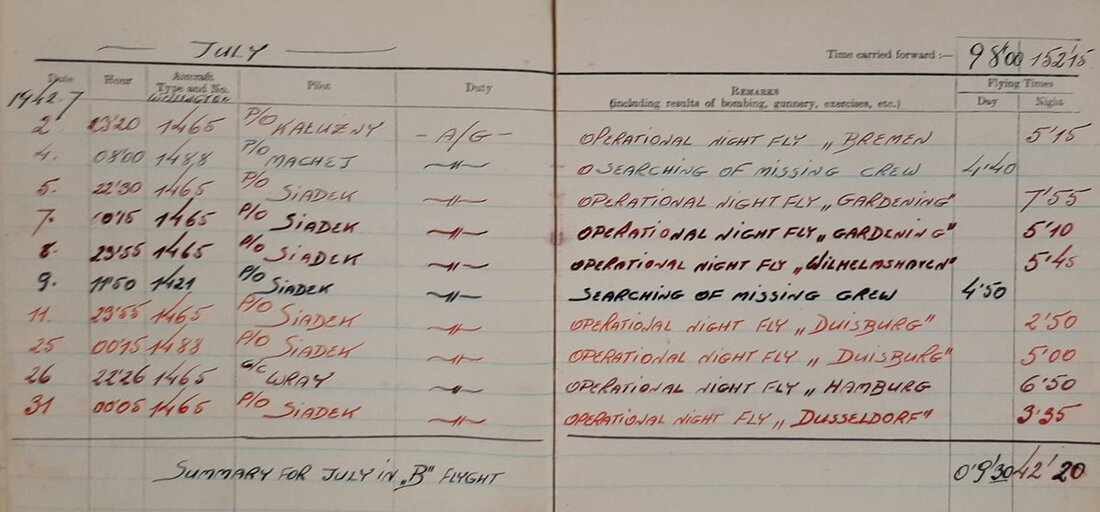 — JULY —
Time carried forward :— 98'00 152'15
Date Hour Aircraft Type and No. Pilot Duty REMARKS (including results of bombing, gunnery, exercises, etc.) Flying Times Day Night
1942-7 WELLINGTON
2. 23'20 1465 P/O KAŁUŻNY — A/G — OPERATIONAL NIGHT FLY „BREMEN 5'15
4. 08'00 1488 P/O MACHEJ —〃— SEARCHING OF MISSING CREW 4'40
5. 22'30 1465 P/O SIADEK —〃— OPERATIONAL NIGHT FLY „GARDENING" 7'55
7. 1465 P/O SIADEK —〃— OPERATIONAL NIGHT FLY „GARDENING" 5'10
8. 23'55 1465 P/O SIADEK —〃— OPERATIONAL NIGHT FLY „WILHELMSHAVEN" 5'45
9. 11'50 1421 P/O SIADEK —〃— SEARCHING OF MISSING CREW 4'50
11. 23'55 1465 P/O SIADEK —〃— OPERATIONAL NIGHT FLY „DUISBURG" 2'50
25 00'15 1488 P/O SIADEK —〃— OPERATIONAL NIGHT FLY „DUISBURG" 5'00
26 22'26 1465 G/C WRAY —〃— OPERATIONAL NIGHT FLY „HAMBURG 6'50
31 00'05 1465 P/O SIADEK —〃— OPERATIONAL NIGHT FLY „DUSSELDORF" 3'35
SUMMARY FOR JULY IN „B" FLYGHT 0'9'30 42'20